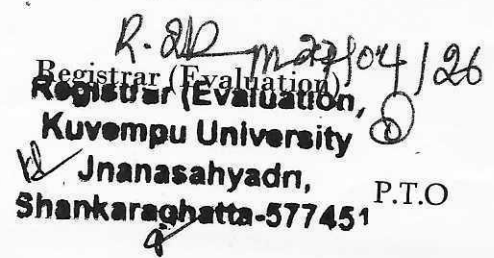 27/04/26
Registrar (Evaluation)
Registrar (Evaluation,
Kuvempu University
Jnanasahyadri,
P.T.O
Shankaraghatta-577451